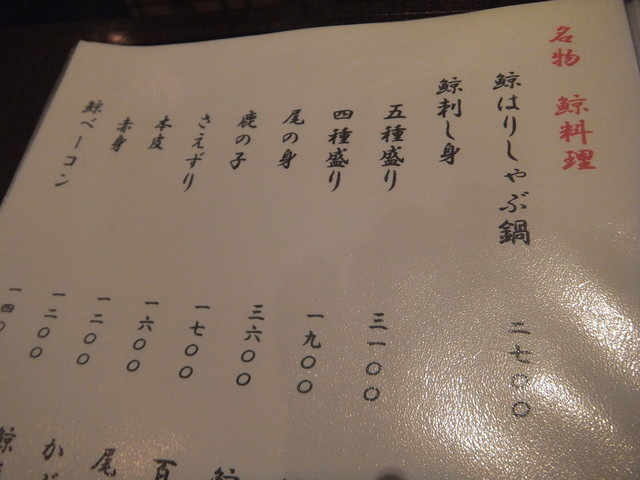 名物 鯨料理
鯨はりしゃぶ鍋 二七〇〇
鯨刺し身
五種盛り 三一〇〇
四種盛り 一九〇〇
尾の身 三六〇〇
鹿の子 一七〇〇
さえずり 一六〇〇
本皮 一二〇〇
赤身 一二〇〇
鯨ベーコン 一四〇
百
尾
か